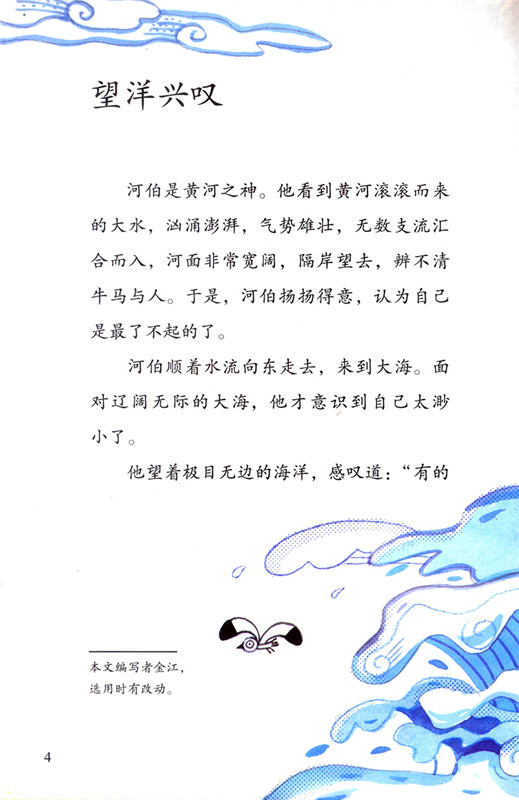 望洋兴叹
河伯是黄河之神。他看到黄河滚滚而来
的大水，汹涌澎湃，气势雄壮，无数支流汇
合而入，河面非常宽阔，隔岸望去，辨不清
牛马与人。于是，河伯扬扬得意，认为自己
是最了不起的了。
河伯顺着水流向东走去，来到大海。面
对辽阔无际的大海，他才意识到自己太渺
小了。
他望着极目无边的海洋，感叹道：“有的
本文编写者金江，
选用时有改动。
4